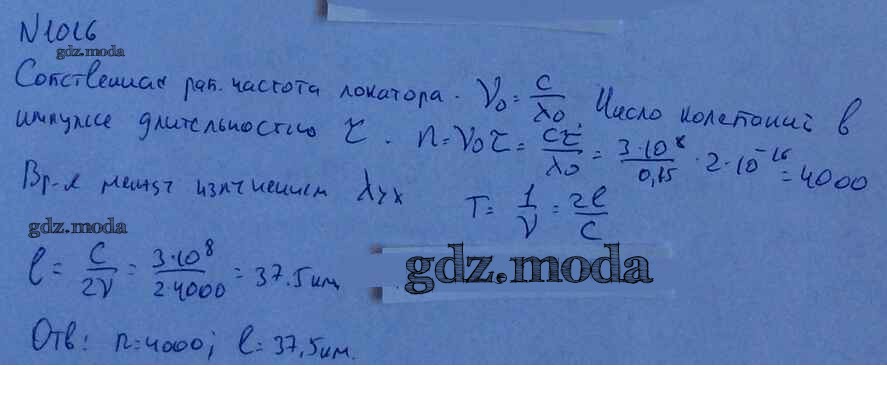 N 1026
gdz.moda
Собственная раб. частота локатора. ν₀ = c/λ₀. Число колебаний в
импульсе длительностью τ. n = ν₀τ = cτ/λ₀ = 3·10⁸/0,15 · 2·10⁻¹⁶ = 4000
Вр-я между излучением
T = 1/ν = 2l/c
gdz.moda
l = c/2ν = 3·10⁸/2·4000 = 37.5 км
gdz.moda
Отв: n=4000; l=37,5км.